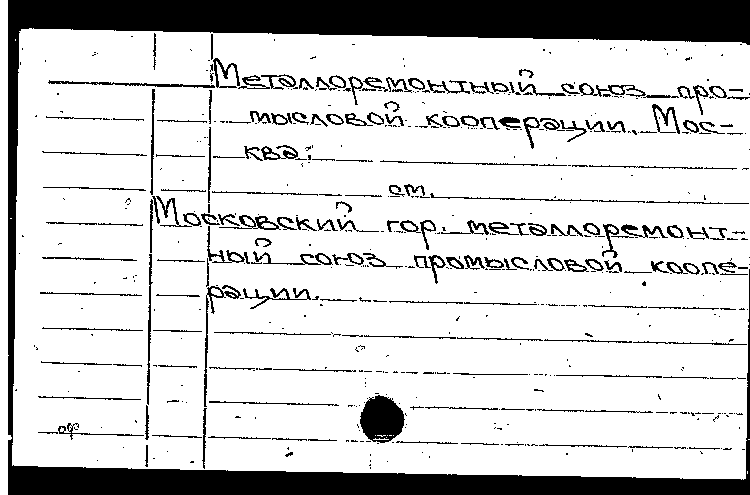 Металлоремонтный союз про-
мысловой кооперации. Мос-
ква;
см.
Московский гор. металлоремонт-
ный союз промысловой коопе-
рации.